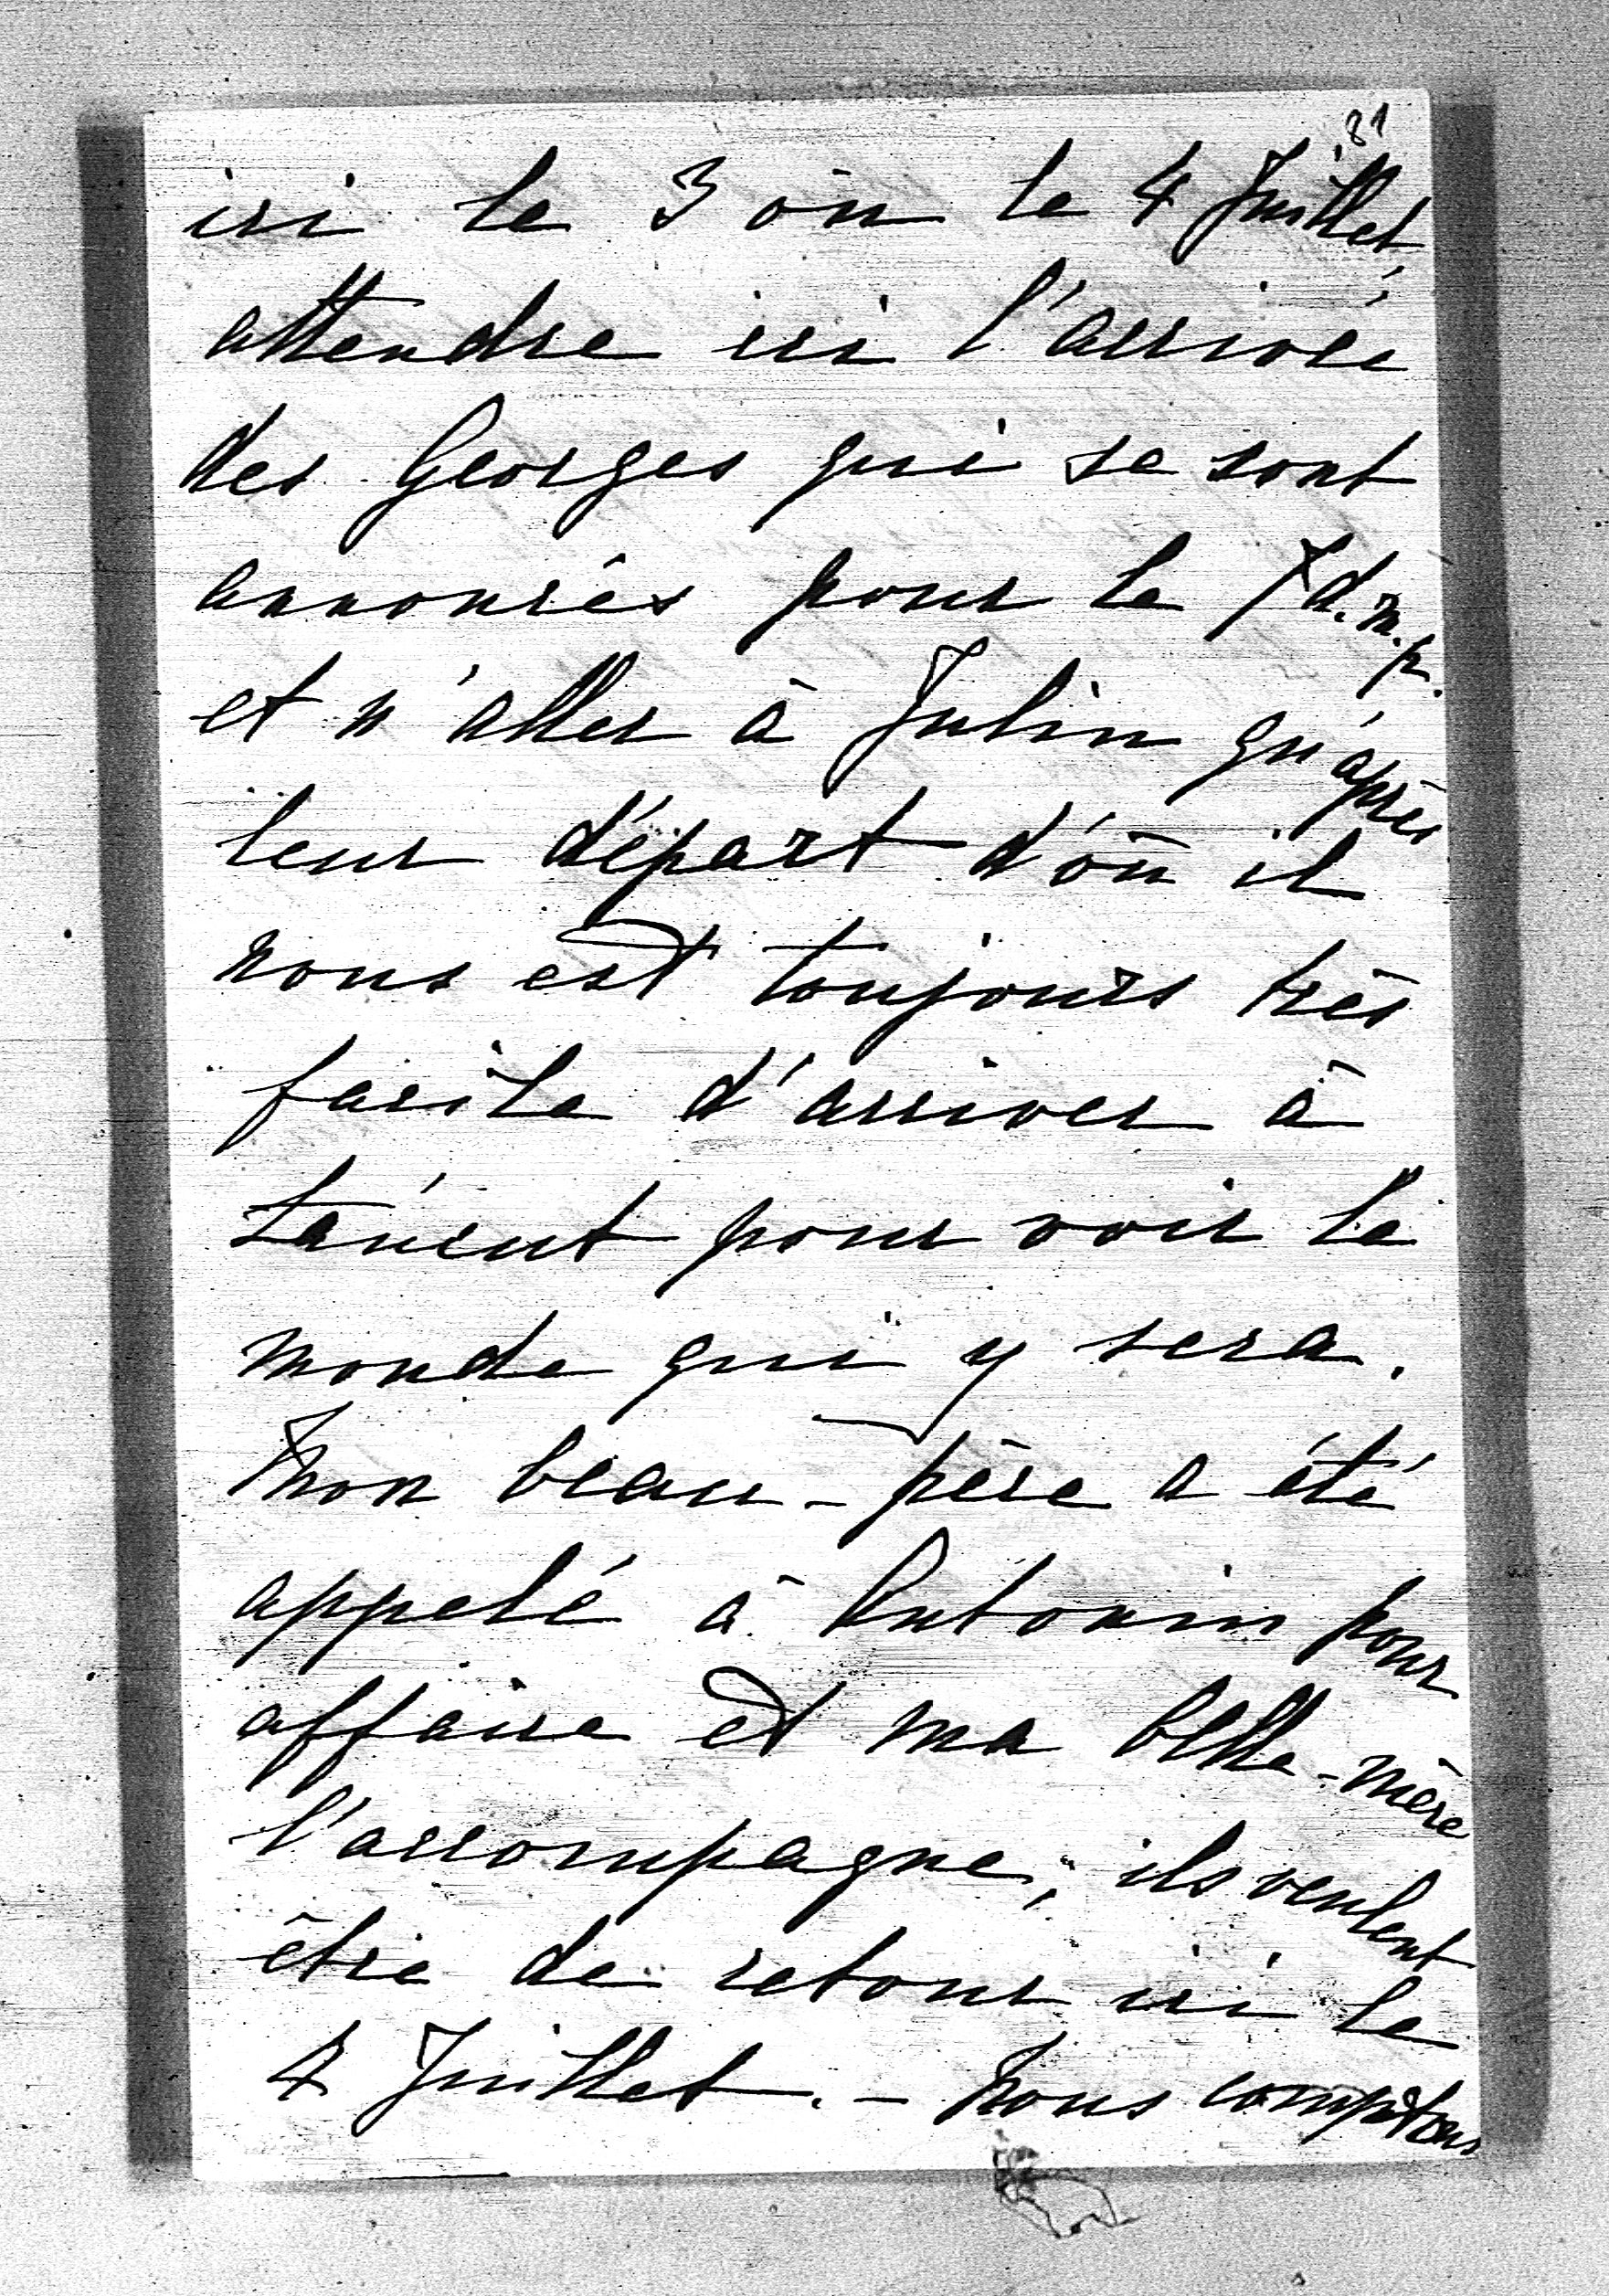 81
ici le 3 où le 4 Juillet,
attendre ici l'arrivée
des Georges qui se sont
annoncés pour le 7 d.m.p.
et n'aller à Julin qu'après
leur départ d'où il
nous est toujours très
facile d'arriver à
Lańcut pour voir le
monde qui y sera.
Mon beau-père a été
appelé à Antonin pour
affaire et ma belle-mère
l'accompagne; ils veulent
être de retour ici le
4 Juillet. - Nous comptons